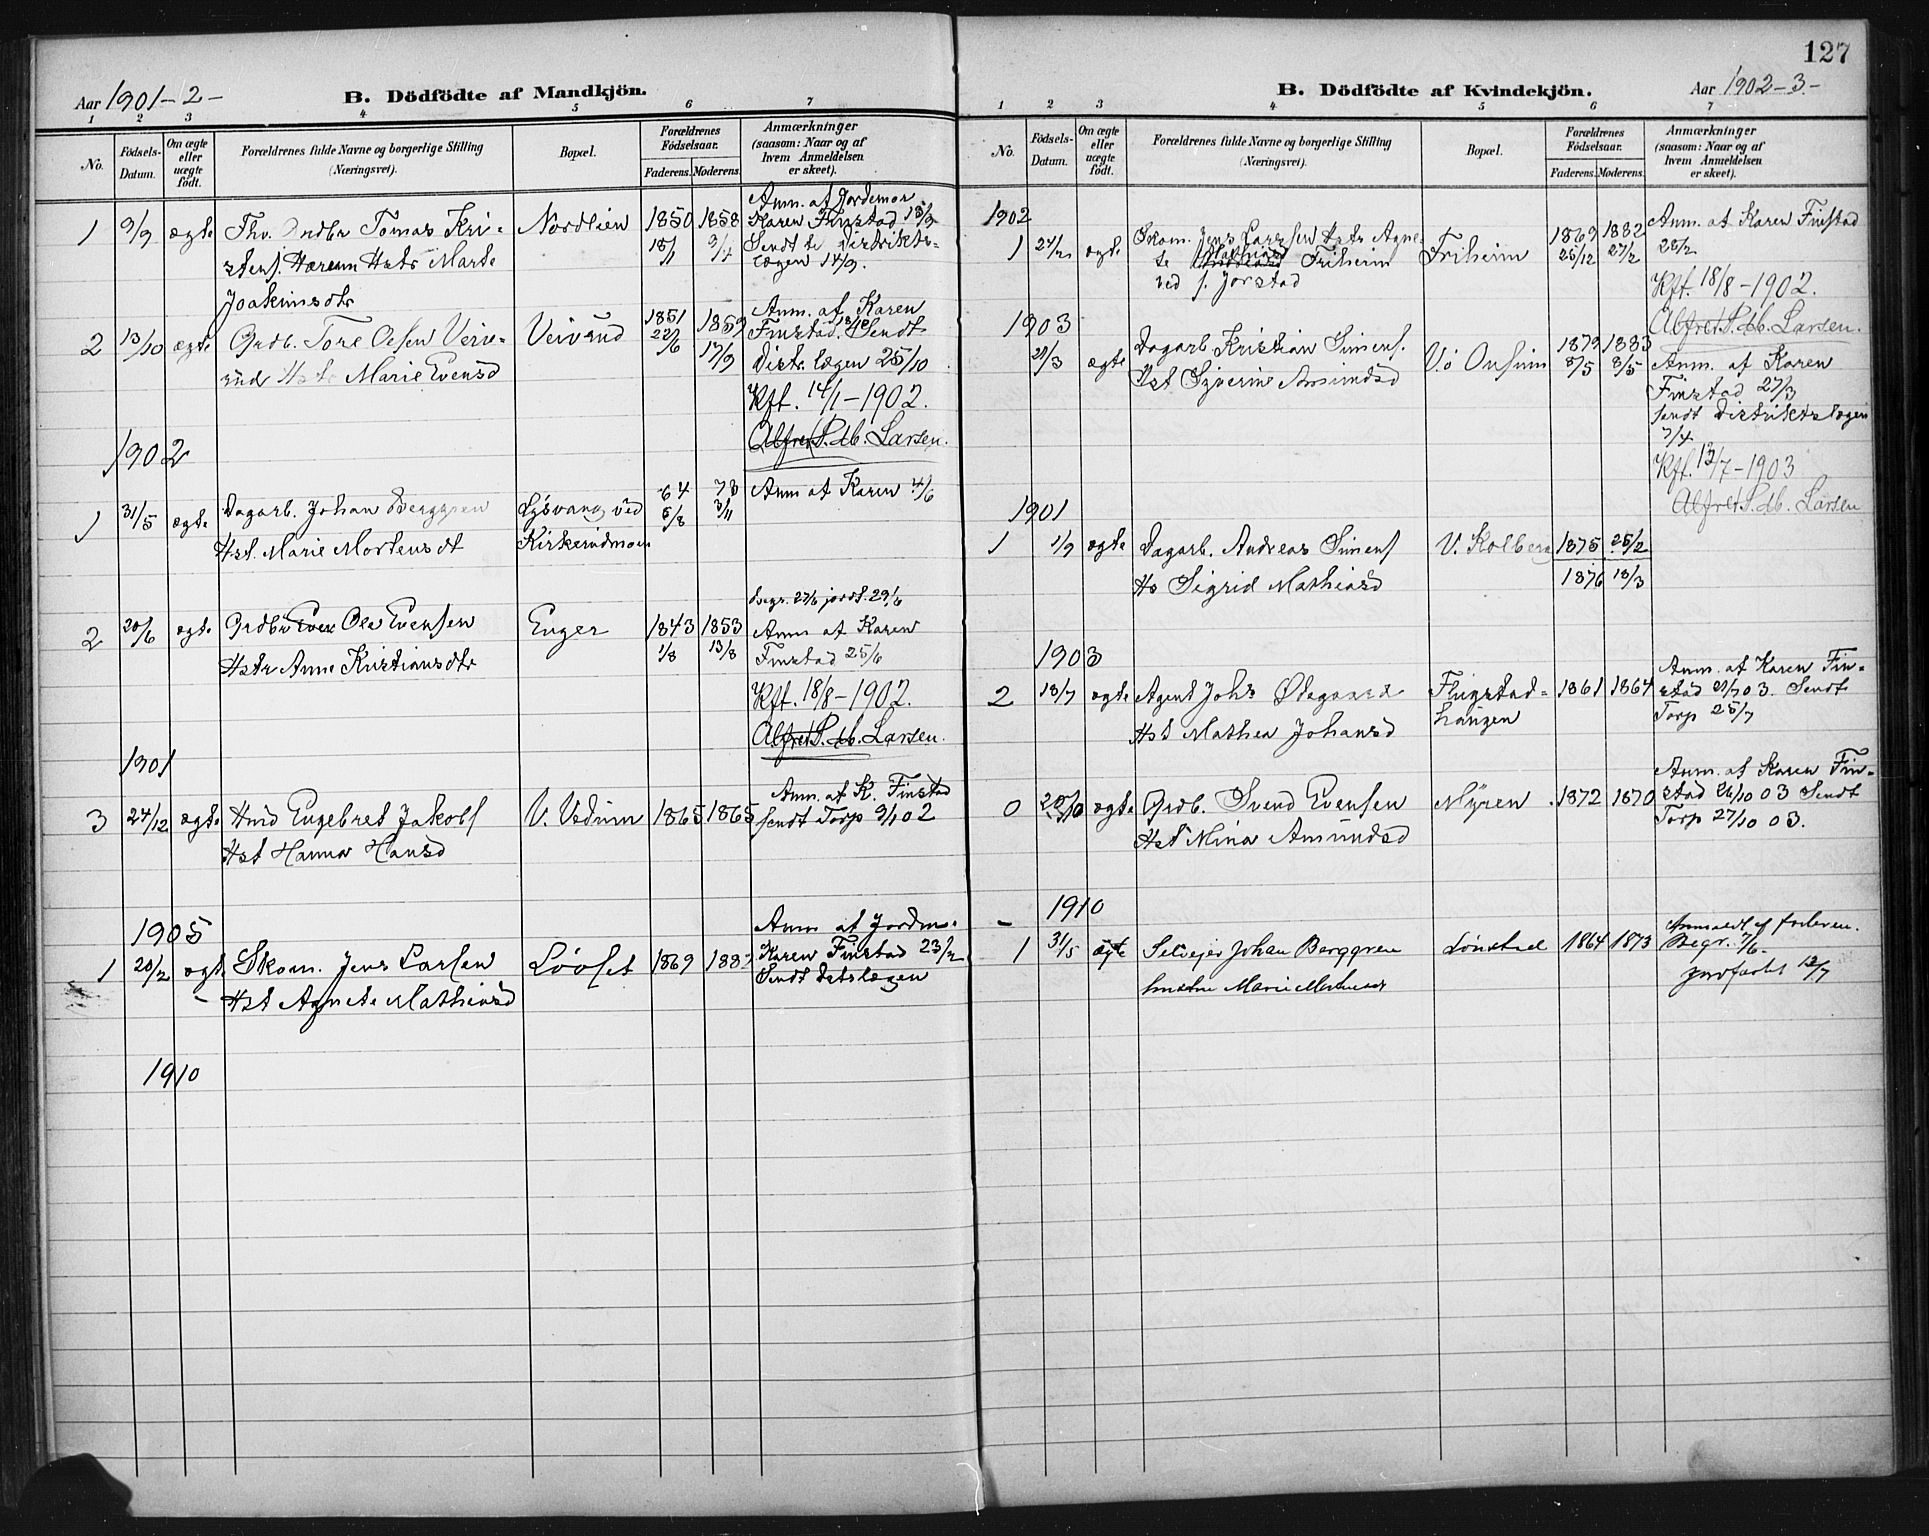 Aar 1901-2-
B. Dödfödte af Mandkjön.
1 2 3 4 5 6 7
No.
Födsels-
Datum.
Om ægte
eller
uægte
födt.
Forældrenes fulde Navne og borgerlige Stilling
(Næringsvei).
Bopæl.
Forældrenes
Födselsaar.
Faderens. Moderens.
Anmærkninger
(saasom: Naar og af
hvem Anmeldelsen
er skeet).
1 9/9 ægte
Tomas Kri-
stens. Hstr Marte
Joakimsdtr
Nordlien
1850 1858
Anm. af Jordemor
Karen Finstad 13/9
Sendt til Distrikts-
lægen 14/9.
2 13/10 ægte
Grdb. Tore Olsen Veiv-
rud Hstr Marie Evensd
Veivrud
1851 1859
22/6 17/9
Anm. af Karen
Finstad. Sendt
Distr. lægen 25/10
Kft. 14/1-1902.
Alfred S. Larsen.
1902
1 31/5 ægte
Dagarb. Johan Berggren
Hst. Marie Mortensdt
ved
Kirkerudmoen
64 73
5/8 3/11
Anm af Karen 4/6
2 20/6 ægte
Grdbr Even Ole Evensen
Hstr Anne Kristiansdtr
Enger
1843 1853
1/8 13/8
Begr. 27/6 jordf. 29/6
Anm af Karen
Finstad 25/6
Kft. 18/8-1902.
Alfred S. Larsen.
1901
3 24/12 ægte
Hmd Engebret Jakobs
Hst Hanna Hansd
V. Vedum
1865 1865
Anm. af K. Finstad
sendt Torp 9/1 02
1905
1 20/2 ægt
Skom. Jens Larsen
Hst Agnete Mathiasd
Løvset
1869 1882
Anm af Jordm.
Karen Finstad 23/2
Sendt Dstslægen
1910
127
B. Dödfödte af Kvindekjön.
Aar 1902-3-
1 2 3 4 5 6 7
No.
Födsels-
Datum.
Om ægte
eller
uægte
födt.
Forældrenes fulde Navne og borgerlige Stilling
(Næringsvei).
Bopæl.
Forældrenes
Födselsaar.
Faderens. Moderens.
Anmærkninger
(saasom: Naar og af
hvem Anmeldelsen
er skeet).
1902
1 24/2 ægte
Skom. Jens Larssen Hstr Agne-
te Mathiasd Friheim
ved J. Jorstad
Friheim
1869 1882
25/12 27/2
Anm. af Karen Finstad
28/2
Kft. 18/8-1902.
Alfred S. Larsen.
1903
21/3 ægte
Dagarb. Kristian Simens.
Hst Syverine Amundsd
V. Onsum
1879 1883
8/5 8/5
Anm. af Karen
Finstad 27/3
sendt Distriktslægen
7/4
Kft. 13/7-1903
Alfred S. Larsen
1901
1 1/9 ægte
Dagarb. Andreas Simens
Hs Sigrid Mathiasd
V. Kolberg
1875 25/2
1876 18/3
1903
2 18/7 ægte
Agent Johs Ødegaard
Hst Mathea Johansd
Flugstad-
haugen
1861 1864
Anm. af Karen Fin-
stad 21/7 03. Sendt
Torp 25/7
0 20/10 ægte
Grdb. Svend Evensen
Hst Mina Amundsd
Myren
1872 1870
Anm. af Karen Fin-
stad 26/10 03 Sendt
Torp 27/10 03.
1910
1 31/5 ægte
Selveier Johan Berggren
hustru Marie Mortensd
Lønstad
1864 1873
Anmeldt af forlöven.
Begr. 7/6.
jordfæstet 12/7